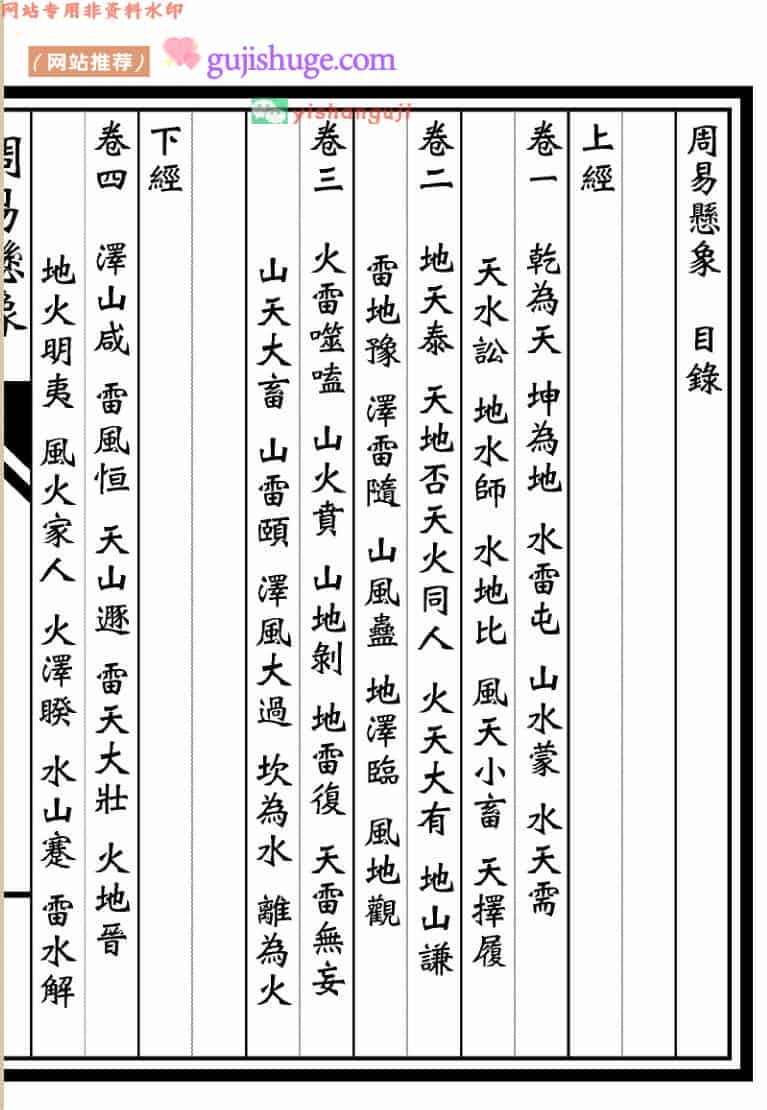 网站专用非资料水印
（网站推荐） gujishuge.com
yishanguji
周易懸象 目錄
上經
卷一 乾為天 坤為地 水雷屯 山水蒙 水天需
天水訟 地水師 水地比 風天小畜 天擇履
卷二 地天泰 天地否 天火同人 火天大有 地山謙
雷地豫 澤雷隨 山風蠱 地澤臨 風地觀
卷三 火雷噬嗑 山火賁 山地剝 地雷復 天雷無妄
山天大畜 山雷頤 澤風大過 坎為水 離為火
下經
卷四 澤山咸 雷風恒 天山遯 雷天大壯 火地晉
地火明夷 風火家人 火澤睽 水山蹇 雷水解
周易懸象